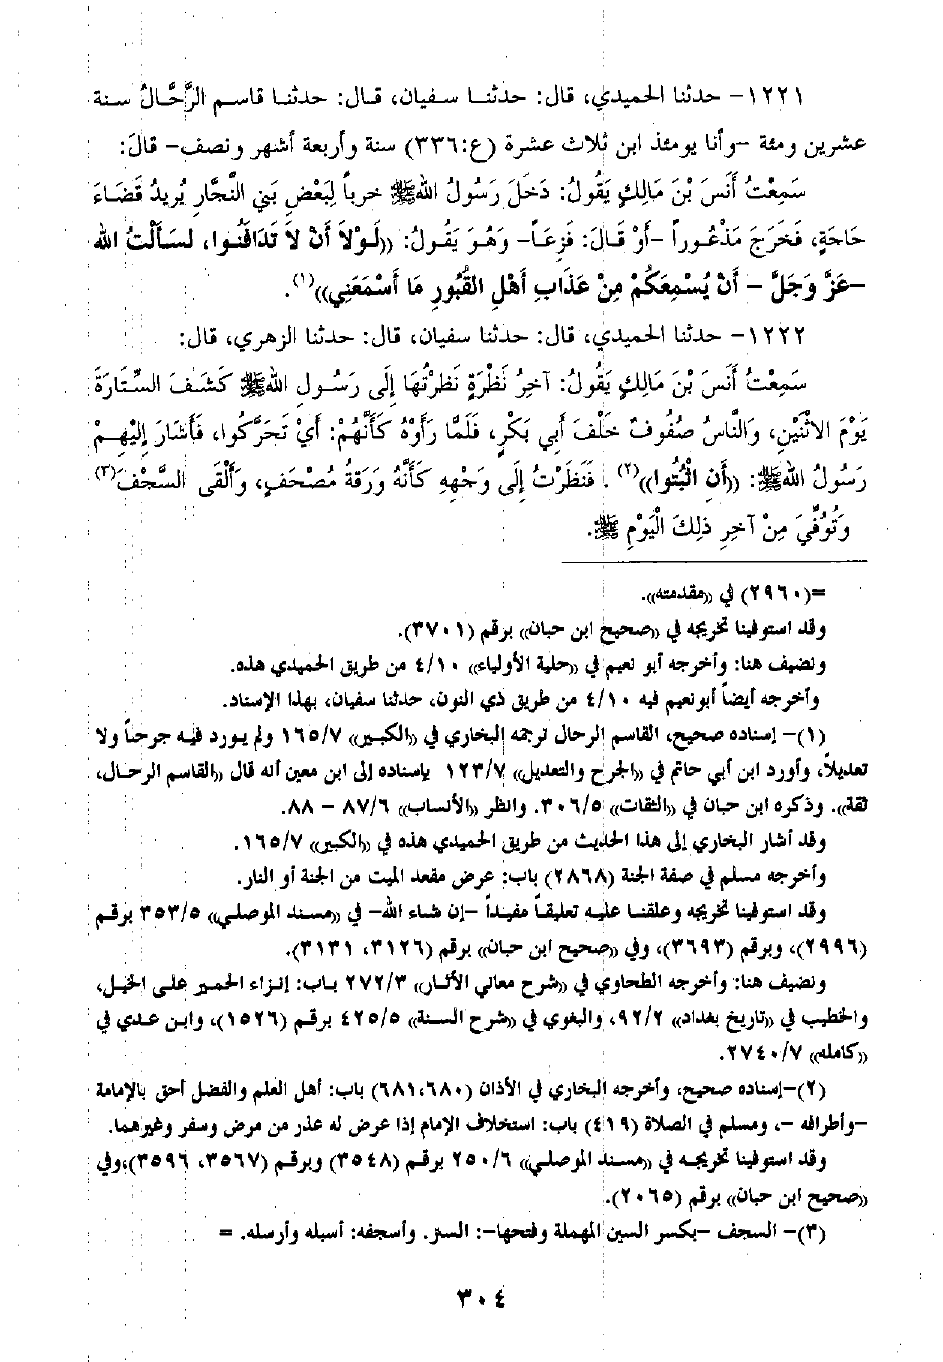 ١٢٢١- حدثنا الحميدي، قال: حدثنا سفيان، قال: حدثنا قاسم الرَّحَّالُ سنة
عشرين ومئة -وأنا يومئذ ابن ثلاث عشرة (ع:٣٣٦) سنة وأربعة أشهر ونصف- قالَ:
سَمِعْتُ أَنَسَ بْنَ مَالِكٍ يَقُولُ: دَخَلَ رَسُولُ اللهِ ﷺ خرباً لِبَعْضِ بَنِي النَّجَّارِ يُرِيدُ قَضَاءَ
حَاجَةٍ، فَخَرَجَ مَذْعُوراً -أَوْ قَالَ: فَزِعَاً- وَهُوَ يَقُولُ: ((لَوْلاَ أَنْ لاَ تَدَافَنُوا، لسَأَلْتُ الله
-عَزَّ وَجَلَّ - أَنْ يُسْمِعَكُمْ مِنْ عَذَابِ أَهْلِ القُبُورِ مَا أَسْمَعَنِي))(١).
١٢٢٢- حدثنا الحميدي، قال: حدثنا سفيان، قال: حدثنا الزهري، قال:
سَمِعْتُ أَنَسَ بْنَ مَالِكٍ يَقُولُ: آخِرُ نَظْرَةٍ نَظَرْتُهَا إِلَى رَسُولِ اللهِ ﷺ كَشَفَ السِّتَارَةَ
يَوْمَ الاثْنَيْنِ، وَالنَّاسُ صُفُوفٌ خَلْفَ أَبِي بَكْرٍ، فَلَمَّا رَأَوْهُ كَأَنَّهُمْ: أَيْ تَحَرَّكُوا، فَأَشَارَ إِلَيْهِمْ
رَسُولُ اللهِ ﷺ: ((أَنِ اثْبُتُوا))(٢). فَنَظَرْتُ إِلَى وَجْهِهِ كَأَنَّهُ وَرَقَةُ مُصْحَفٍ، وَأَلْقَى السَّجْفَ(٣)
وَتُوُفِّيَ مِنْ آخِرِ ذلِكَ الْيَوْمِ ﷺ.
=(٢٩٦٠) في ((مقدمته)).
وقد استوفينا تخريجه في ((صحيح ابن حبان)) برقم (٣٧٠١).
ونضيف هنا: وأخرجه أبو نعيم في ((حلية الأولياء)) ٤/١٠ من طريق الحميدي هذه.
وأخرجه أيضاً أبونعيم فيه ٤/١٠ من طريق ذي النون، حدثنا سفيان، بهذا الإسناد.
(١)- إسناده صحيح، القاسم الرحال ترجمه البخاري في ((الكبير)) ١٦٥/٧ ولم يورد فيه جرحاً ولا
تعديلاً، وأورد ابن أبي حاتم في ((الجرح والتعديل)) ١٢٣/٧ بإسناده إلى ابن معين أنه قال ((القاسم الرحال،
ثقة)). وذكره ابن حبان في ((الثقات)) ٣٠٦/٥. وانظر ((الأنساب)) ٨٧/٦ - ٨٨.
وقد أشار البخاري إلى هذا الحديث من طريق الحميدي هذه في ((الكبير)) ١٦٥/٧.
وأخرجه مسلم في صفة الجنة (٢٨٦٨) باب: عرض مقعد الميت من الجنة أو النار.
وقد استوفينا تخريجه وعلقنا عليه تعليقاً مفيداً -إن شاء الله- في ((مسند الموصلي)) ٣٥٣/٥ برقم
(٢٩٩٦)، وبرقم (٣٦٩٣)، وفي ((صحيح ابن حبان)) برقم (٣١٢٦، ٣١٣١).
ونضيف هنا: وأخرجه الطحاوي في ((شرح معاني الآثار)) ٢٧٢/٣ باب: إنزاء الحمير على الخيل،
والخطيب في ((تاريخ بغداد)) ٩٢/٢، والبغوي في ((شرح السنة)) ٤٢٥/٥ برقم (١٥٢٦)، وابن عدي في
((كامله)) ٢٧٤٠/٧.
(٢)-إسناده صحيح، وأخرجه البخاري في الأذان (٦٨١،٦٨٠) باب: أهل العلم والفضل أحق بالإمامة
-وأطرافه -، ومسلم في الصلاة (٤١٩) باب: استخلاف الإمام إذا عرض له عذر من مرض وسفر وغيرهما.
وقد استوفينا تخريجه في ((مسند الموصلي)) ٢٥٠/٦ برقم (٣٥٤٨) وبرقم (٣٥٦٧، ٣٥٩٦)،وفي
((صحيح ابن حبان)) برقم (٢٠٦٥).
(٣)- السجف -بكسر السين المهملة وفتحها-: الستر. وأسجفه: أسبله وأرسله. =
٣٠٤